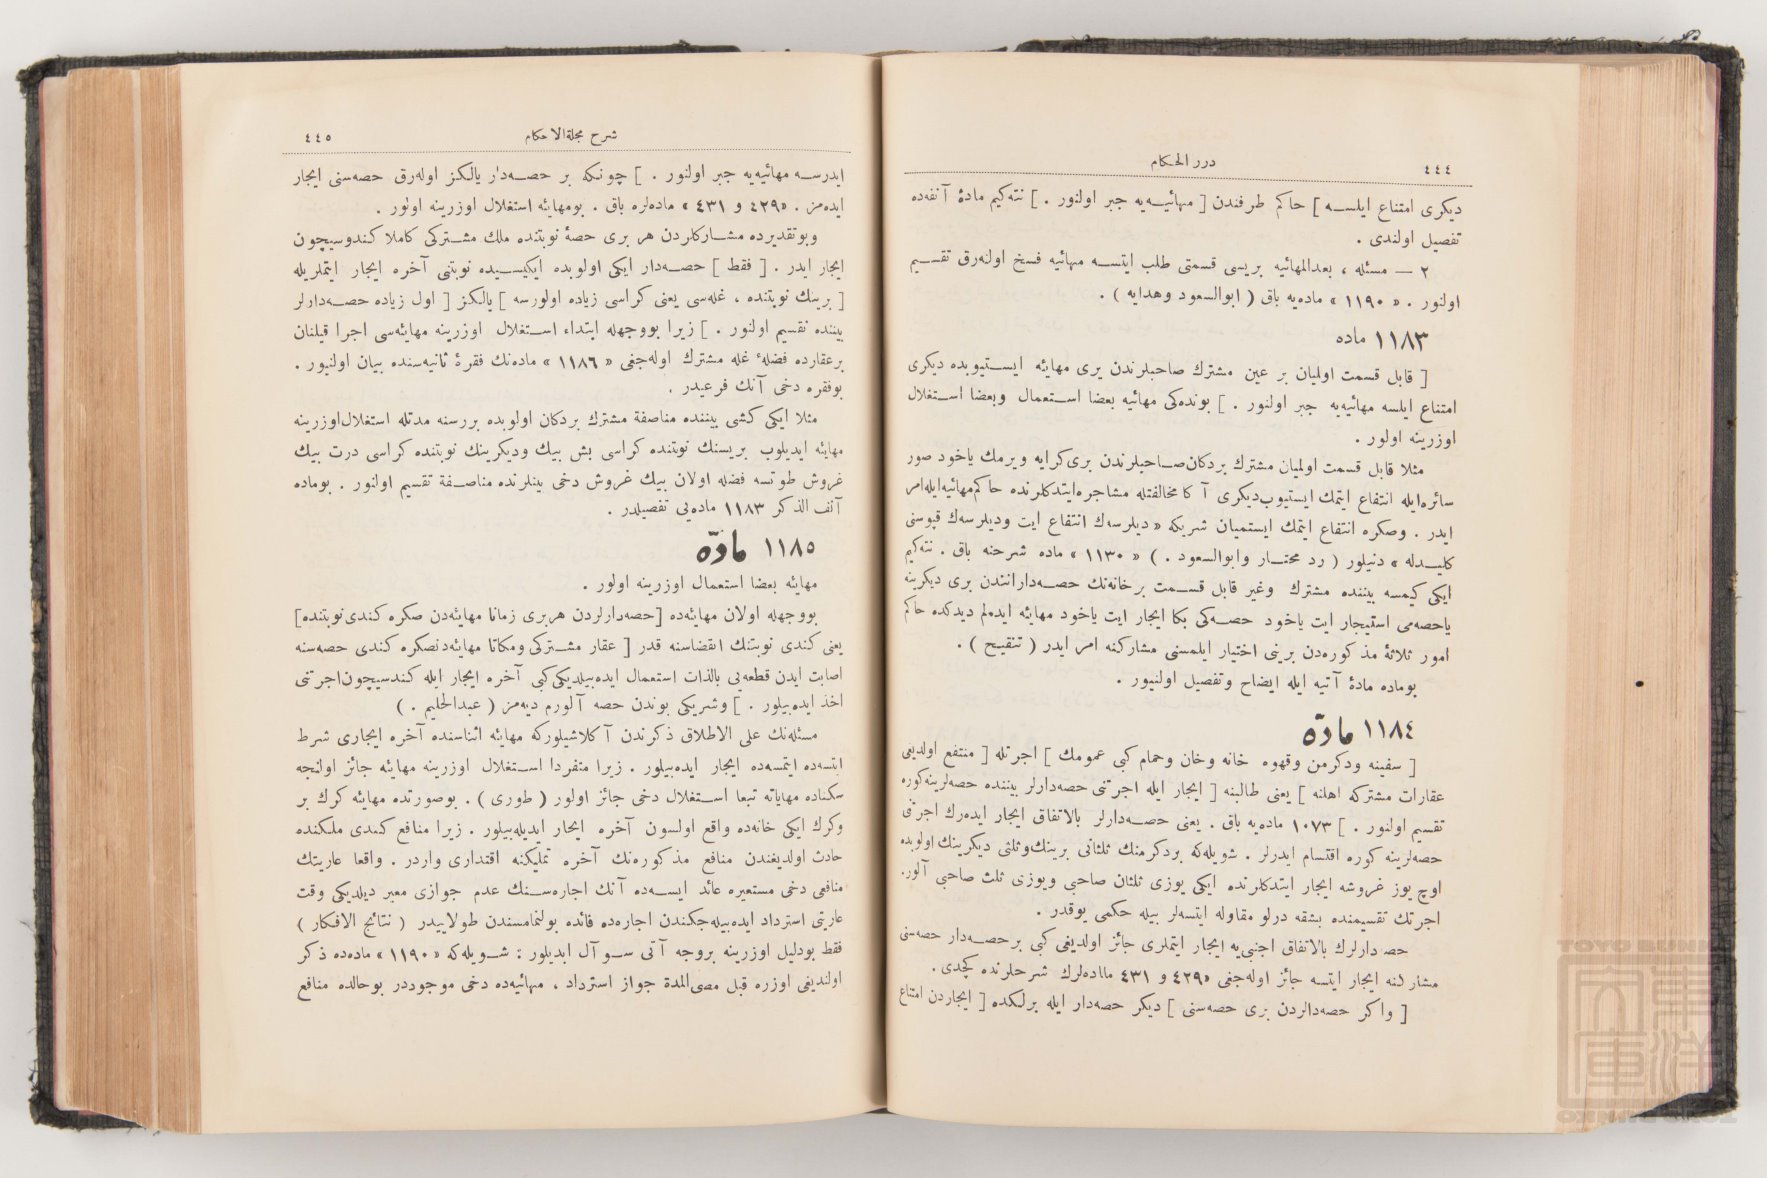 ٤٤٤
درر الحكام
ديكرى امتناع ايلسه ] حاكم طرفندن [ مهائيه‌يه جبر اولنور . ] نته‌كيم مادهٔ آنفه‌ده
تفصيل اولندى .
٢ — مسئله ، بعدالمهائيه بريسى قسمتى طلب ايتسه مهائيه فسخ اولنه‌رق تقسيم
اولنور . « ١١٩٠ » ماده‌يه باق ( ابوالسعود وهدايه ) .
١١٨٣ ماده
[ قابل قسمت اوليان بر عين مشترك صاحبلرندن برى مهائيه ايستيوبده ديكرى
امتناع ايلسه مهائيه‌يه جبر اولنور . ] بونده‌كى مهائيه بعضا استعمال وبعضا استغلال
اوزرينه اولور .
مثلا قابل قسمت اوليان مشترك بردكان صاحبلرندن برى كرايه ويرمك ياخود صور
سائره‌ايله انتفاع ايتمك ايستيوب ديكرى آ كا مخالفتله مشاجره‌ايتدكلرنده حاكم مهائيه‌ايله‌امر
ايدر . وصكره انتفاع ايتمك ايستميان شريكه « ديلرسه‌ك انتفاع ايت وديلرسه‌ك قپوسنى
كليدله » دنيلور ( رد محتار وابوالسعود . ) « ١١٣٠ » ماده شرحنه باق . نته‌كيم
ايكى كيمسه بيننده مشترك وغير قابل قسمت برخانه‌نك حصه‌دارانندن برى ديكرينه
ياحصه‌مى استيجار ايت ياخود حصه‌كى بكا ايجار ايت ياخود مهائيه ايده‌لم ديدكده حاكم
امور ثلاثهٔ مذ كوره‌دن برينى اختيار ايلمسنى مشاركنه امر ايدر ( تنقيح ) .
بوماده مادهٔ آتيه ايله ايضاح وتفصيل اولنيور .
١١٨٤ مادّه
[ سفينه ودكرمن وقهوه خانه وخان وحمام كبى عمومك ] اجرتله [ منتفع اولديغى
عقارات مشتركه اهلنه ] يعنى طالبنه [ ايجار ايله اجرتنى حصه‌دارلر بيننده حصه‌لرينه‌كوره
تقسيم اولنور . ] ١٠٧٣ ماده‌يه باق . يعنى حصه‌دارلر بالاتفاق ايجار ايده‌رك اجرتى
حصه‌لرينه كوره اقتسام ايدرلر . شويله‌كه بردكرمنك ثلثانى برينك‌وثلثى ديكرينك‌اولوبده
اوچ يوز غروشه ايجار ايتدكلرنده ايكى يوزى ثلثان صاحبى ويوزى ثلث صاحبى آلور.
اجرتك تقسيمنده بشقه درلو مقاوله ايتسه‌لر بيله حكمى يوقدر .
حصه دارلرك بالاتفاق اجنبى‌يه ايجار ايتملرى جائز اولديغى كبى برحصه‌دار حصه‌سنى
مشار كنه ايجار ايتسه جائز اوله‌جغى «٤٢٩ و ٤٣١ مااده‌لرك شرحلرنده كچدى .
[ واكر حصه‌دالردن برى حصه‌سنى ] ديكر حصه‌دار ايله برلكده [ ايجاردن امتناع
شرح مجلة الاحكام
٤٤٥
ايدرسه مهائيه‌يه جبر اولنور . ] چونكه بر حصه‌دار يالكز اوله‌رق حصه‌سنى ايجار
ايده‌مز . «٤٢٩ و ٤٣١ » ماده‌لره باق . بومهايئه استغلال اوزرينه اولور .
وبوتقديرده مشاركلردن هر برى حصهٔ نوبتنده ملك مشتركى كاملا كندوسيچون
ايجار ايدر . [ فقط ] حصه‌دار ايكى اولوبده ايكيسيده نوبتنى آخره ايجار ايتملريله
[ برينك نوبتنده ، غله‌سى يعنى كراسى زياده اولورسه ] يالكز [ اول زياده حصه‌دارلر
بيننده تقسيم اولنور . ] زيرا بووجهله ابتداء استغلال اوزرينه مهايئه‌سى اجرا قيلنان
برعقارده فضلهٔ غله مشترك اوله‌جغى « ١١٨٦ » ماده‌نك فقرهٔ ثانيه‌سنده بيان اولنيور .
بوفقره دخى آنك فرعيدر .
مثلا ايكى كشى بيننده مناصفة مشترك بردكان اولوبده بررسنه مدتله استغلال‌اوزرينه
مهايئه ايديلوب بريسنك نوبتنده كراسى بش بيك وديكرينك نوبتنده كراسى درت بيك
غروش طوتسه فضله اولان بيك غروش دخى بينلرنده مناصفة تقسيم اولنور . بوماده
آنف الذكر ١١٨٣ ماده‌يى تفصيلدر .
١١٨٥ مادّه
مهايئه بعضا استعمال اوزرينه اولور .
بووجهله اولان مهايئه‌ده [حصه‌دارلردن هربرى زمانا مهايئه‌دن صكره كندى‌نوبتنده]
يعنى كندى نوبتنك انقضاسنه قدر [ عقار مشتركى ومكانا مهايئه‌دنصكره كندى حصه‌سنه
اصابت ايدن قطعه‌يى بالذات استعمال ايده‌بيلديكى‌كبى آخره ايجار ايله كندسيچون‌اجرتنى
اخذ ايده‌بيلور . ] وشريكى بوندن حصه آلورم ديه‌مز ( عبدالحليم . )
مسئله‌نك على الاطلاق ذكرندن آ كلاشيلوركه مهايئه اثناسنده آخره ايجارى شرط
ايتسه‌ده ايتمسه‌ده ايجار ايده‌بيلور . زيرا منفردا استغلال اوزرينه مهايئه جائز اولنجه
سكناده مهاياته تبعا استغلال دخى جائز اولور ( طورى ) . بوصورتده مهايئه كرك بر
وكرك ايكى خانه‌ده واقع اولسون آخره ايجار ايديله‌بيلور . زيرا منافع كندى ملكنده
حادث اولديغندن منافع مذ كوره‌نك آخره تمليكنه اقتدارى واردر . واقعا عاريتك
منافعى دخى مستعيره عائد ايسه‌ده آنك اجاره‌سنك عدم جوازى معير ديلديكى وقت
عاريتى استرداد ايده‌بيله‌جكندن اجاره‌ده فائده بولنمامسندن طولاييدر ( نتائج الافكار )
فقط بودليل اوزرينه بروجه آتى سو آل ايديلور : شويله‌كه «١١٩٠ » ماده‌ده ذكر
اولنديغى اوزره قبل مضى‌المدة جواز استرداد ، مهائيه‌ده دخى موجوددر بوحالده منافع
TOYO BUNKO